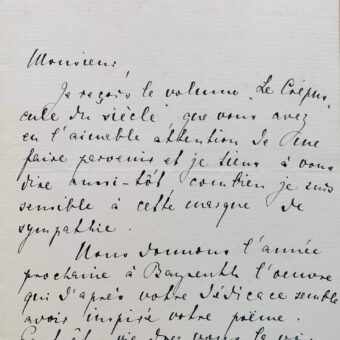 Monsieur,
Je reçois le volume "Le Crépus
cule du siècle", que vous avez
eu l'aimable attention de me
faire parvenir et je tiens à vous
dire aussi-tôt, combien je suis
sensible à cette marque de
sympathie.
Nous donnons l'année
prochaine à Bayreuth l'oeuvre
qui d'après votre dédicace semble
avoir inspiré votre poème.